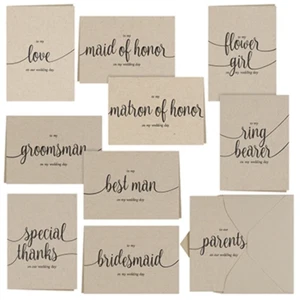 to my
love
on our wedding day
to my
maid of honor
on my wedding day
to my
flower
girl
on my wedding day
to my
matron of honor
on my wedding day
to my
groomsman
on my wedding day
to my
ring
bearer
on my wedding day
to my
best man
on my wedding day
special
thanks
on our wedding day
to my
bridesmaid
on my wedding day
to our
parents
on our wedding day